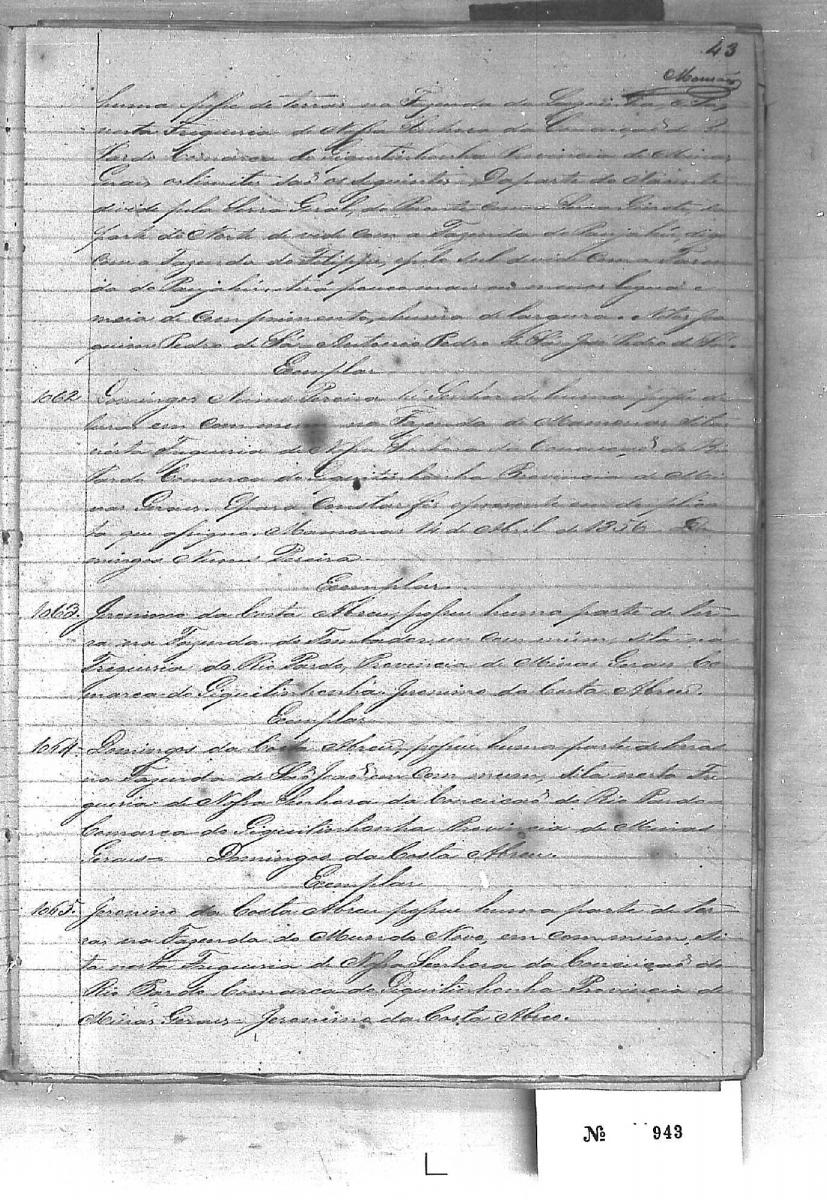 43
huma posse de terras na Fazenda da
nesta Freguesia de Nossa Senhora da Conceição do Rio
Pardo Comarca do Giquitinhonha Provincia de Minas
Gerais os limites são os seguintes. Da parte do Nascente
divide pela Serra Geral, do Poente com a Serra
parte do Norte devide com a Fazenda do digo
com a Fazenda do Filippe, e pelo Sul devide com a Fazen-
da do terá pouco mais ou menos legua e
meia de comprimento, huma de largura
Pedro de Antonio Pedro José Pedro de
Exemplar
1062 Domingos Nunes Pereira he Senhor de huma posse de
terra em commum na Fazenda de Mamonas sita
nesta Freguesia de Nossa Senhora da Conceição do Rio
Pardo Comarca do Giquitinhonha Provincia de Mi-
nas Gerais. E para constar fiz o presente em duplica-
ta que assigno. Mamonas 14 de Abril de 1856. Do-
mingos Nunes Pereira
Exemplar
1063. Jeronimo da Costa Abreu, possue huma parte de ter-
ra na Fazenda do Tombador, em commum, sita na
Freguesia do Rio Pardo, Provincia de Minas Gerais Co-
marca do Giquitinhonha. Jeronimo da Costa Abreu.
Exemplar
1064. Domingos da Costa Abreu, possue huma parte de terras
na Fazenda de São João em commum, sita nesta Fre-
guesia de Nossa Senhora da Conceicão do Rio Pardo
Comarca do Giquitinhonha Provincia de Minas
Gerais - Domingos da Costa Abreu.
Exemplar
1065. Jeronimo da Costa Abreu possue huma parte de ter-
ras na Fazenda do Mundo Novo, em commum, si-
ta nesta Freguesia de Nossa Senhora da Conceicão do
Rio Pardo Comarca do Giquitinhonha Provincia de
Minas Gerais - Jeronimo da Costa Abreu.
No 943